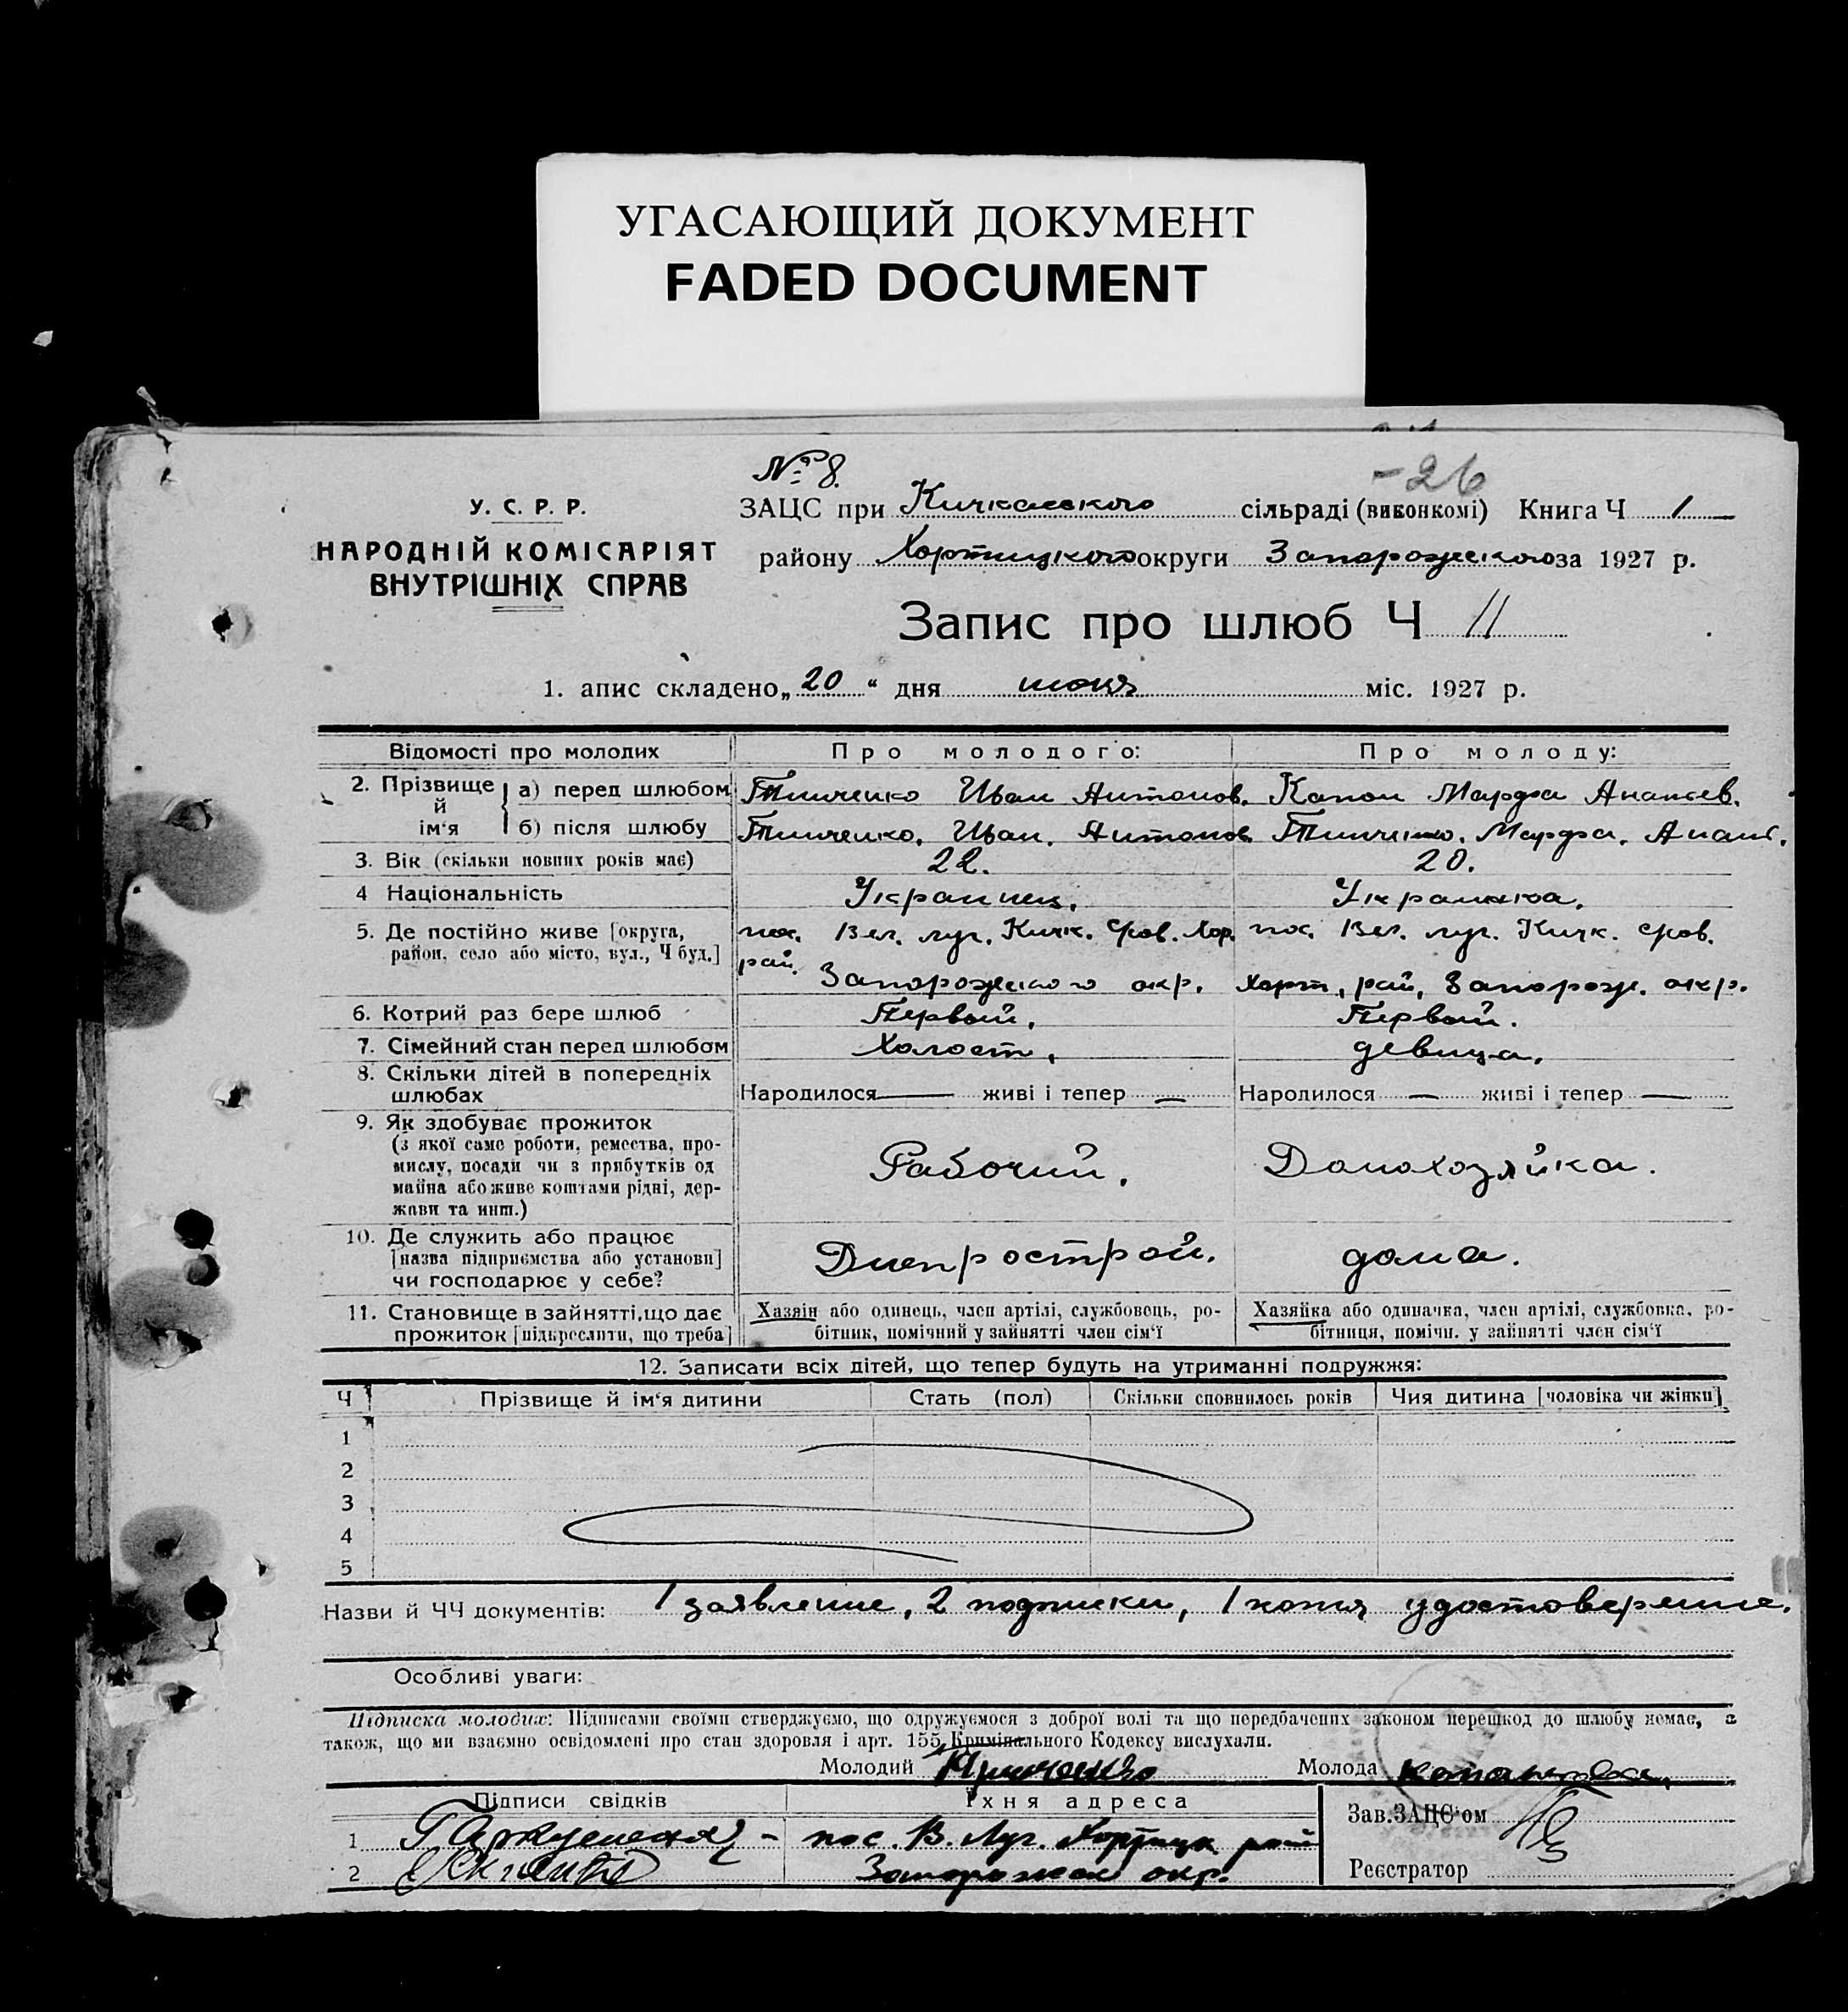 УГАСАЮЩИЙ ДОКУМЕНТ
FADED DOCUMENT
№ 8.
-26
У. С. Р. Р.
НАРОДНІЙ КОМІСАРІЯТ
ВНУТРІШНІХ СПРАВ
ЗАЦС при Кичкасского сільраді (виконкомі) Книга Ч 1
району Хортицкого округи Запорожского за 1927 р.
Запис про шлюб Ч 11
1. апис складено „ 20 “ дня июня міс. 1927 р.
Відомості про молодих Про молодого: Про молоду:
2. Прізвище й ім‘я а) перед шлюбом Тимченко Иван Антонов. Капон Марфа Ананьев.
б) після шлюбу Тимченко. Иван. Антонов Тимченко. Марфа. Анан.
3. Вік (скільки повних років має) 22. 20.
4 Національність Украинец. Украинка.
5. Де постійно живе [округа, пос. Вел. луг. Кичк. Хор. пос. Вел. луг. Кичк.
район, село або місто, вул., Ч буд.] рай. Запорожского окр. Хорт. рай. Запорож. окр.
6. Котрий раз бере шлюб Первый. Первый.
7. Сімейний стан перед шлюбом Холост. девица.
8. Скільки дітей в попередніх
шлюбах Народилося — живі і тепер — Народилося — живі і тепер —
9. Як здобуває прожиток
(з якої саме роботи, ремества, про-
мислу, посади чи з прибутків од Рабочий. Домохозяйка.
майна або живе коштами рідні, дер-
жави та инш.)
10. Де служить або працює
[назва підприємства або установи] Днепрострой. дома.
чи господарює у себе?
11. Становище в зайнятті, що дає Хазяін або одинець, член артілі, службовець, ро- Хазяйка або одиначка, член артілі, службовка, ро-
прожиток [підкреслити, що треба] бітник, помічний у зайнятті член сім‘ї бітниця, помічн. у зайнятті член сім‘ї
12. Записати всіх дітей, що тепер будуть на утриманні подружжя:
Ч Прізвище й ім‘я дитини Стать (пол) Скільки сповнилось років Чия дитина [чоловіка чи жінки]
1
2
3
4
5
Назви й ЧЧ документів: 1 заявление, 2 подписки, 1 копия удостоверение.
Особливі уваги:
Підписка молодих: Підписами своїми стверджуємо, що одружуємося з доброї волі та що передбачених законом перешкод до шлюбу немає, а
також, що ми взаємно освідомлені про стан здоровля і арт. 155 Кримінального Кодексу вислухали.
Молодий Молода
Підписи свідків Їхня адреса
Зав.ЗАЦС‘ом
1 пос. В. Луг. Хортицк рай
2 Запорожск окр.
Реєстратор